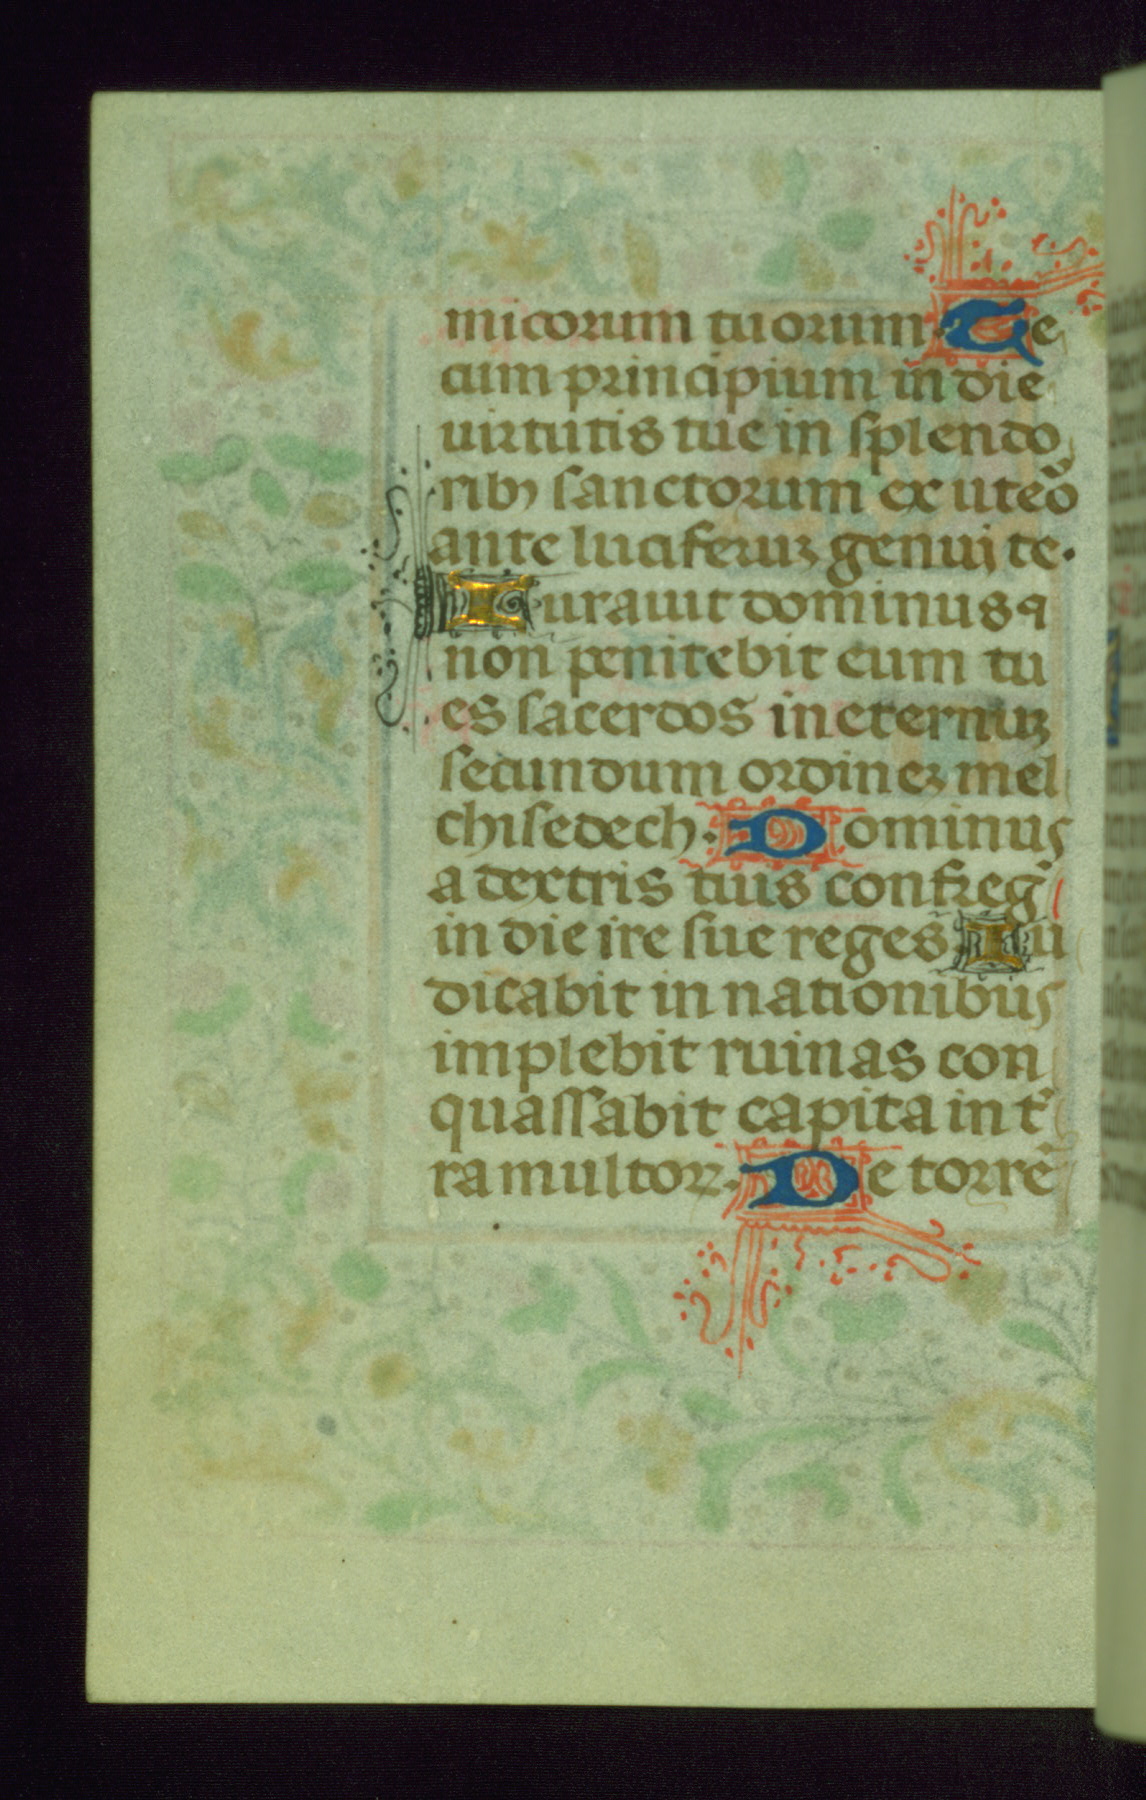 micorum tuorum. Te
cum principium in die
uirtutis tue in splendo
ribꝫ sanctorum ex uteō
ante luciferuꝫ genui te.
Iurauit dominus ꝙ
non penitebit eum tu
es sacerdos in eternuꝫ
secundum ordineꝫ mel
chisedech. Dominus
a dextris tuis confreg̃
in die ire sue reges Iu
dicabit in nationibus
implebit ruinas con
quassabit capita in t̃
ra multoꝝ. De torrē